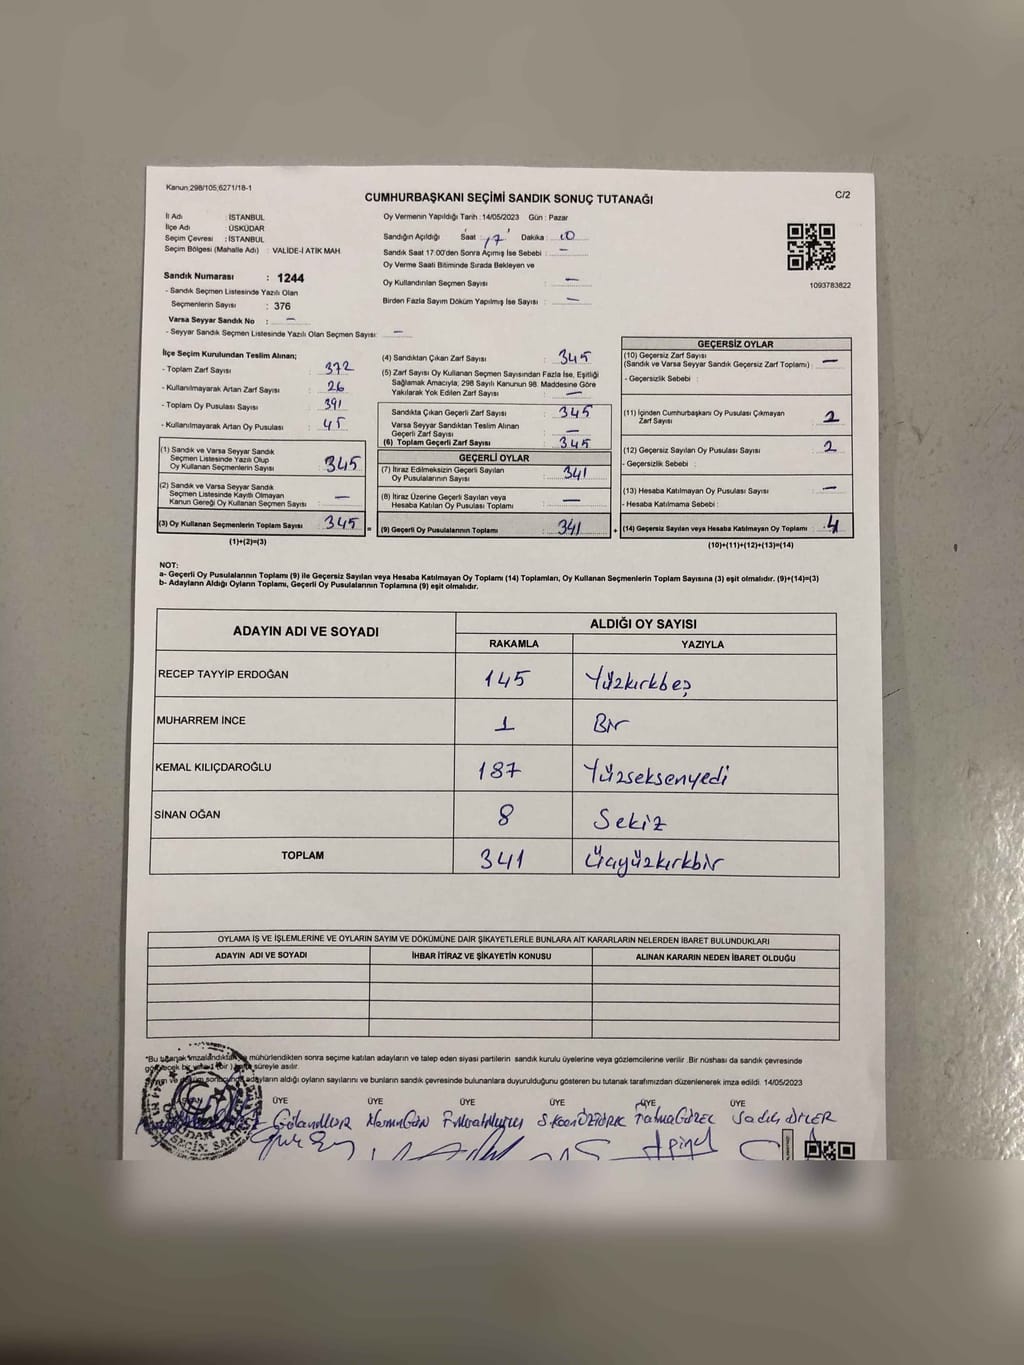 Kanun:298/105;6271/18-1
CUMHURBAŞKANI SEÇİMİ SANDIK SONUÇ TUTANAĞI
C/2
İl Adı : İSTANBUL
İlçe Adı : ÜSKÜDAR
Seçim Çevresi : İSTANBUL
Seçim Bölgesi (Mahalle Adı) : VALİDE-İ ATİK MAH.
Oy Vermenin Yapıldığı Tarih : 14/05/2023 Gün : Pazar
Sandığın Açıldığı Saat : 17 Dakika : 00
Sandık Saat 17:00'den Sonra Açımış İse Sebebi : —
Oy Verme Saati Bitiminde Sırada Bekleyen ve
Oy Kullandırılan Seçmen Sayısı : —
Birden Fazla Sayım Döküm Yapılmış İse Sayısı : —
1093783822
Sandık Numarası : 1244
- Sandık Seçmen Listesinde Yazılı Olan
Seçmenlerin Sayısı : 376
Varsa Seyyar Sandık No : —
- Seyyar Sandık Seçmen Listesinde Yazılı Olan Seçmen Sayısı: —
İlçe Seçim Kurulundan Teslim Alınan;
- Toplam Zarf Sayısı : 372
- Kullanılmayarak Artan Zarf Sayısı : 26
- Toplam Oy Pusulası Sayısı : 391
- Kullanılmayarak Artan Oy Pusulası : 45
(1) Sandık ve Varsa Seyyar Sandık
Seçmen Listesinde Yazılı Olup
Oy Kullanan Seçmenlerin Sayısı : 345
(2) Sandık ve Varsa Seyyar Sandık
Seçmen Listesinde Kayıtlı Olmayan
Kanun Gereği Oy Kullanan Seçmen Sayısı : —
(3) Oy Kullanan Seçmenlerin Toplam Sayısı : 345 =
(1)+(2)=(3)
(4) Sandıktan Çıkan Zarf Sayısı : 345
(5) Zarf Sayısı Oy Kullanan Seçmen Sayısından Fazla İse, Eşitliği
Sağlamak Amacıyla; 298 Sayılı Kanunun 98. Maddesine Göre
Yakılarak Yok Edilen Zarf Sayısı : —
Sandıkta Çıkan Geçerli Zarf Sayısı : 345
Varsa Seyyar Sandıktan Teslim Alınan
Geçerli Zarf Sayısı : —
(6) Toplam Geçerli Zarf Sayısı : 345
GEÇERLİ OYLAR
(7) İtiraz Edilmeksizin Geçerli Sayılan
Oy Pusulalarının Sayısı : 341
(8) İtiraz Üzerine Geçerli Sayılan veya
Hesaba Katılan Oy Pusulası Toplamı : —
(9) Geçerli Oy Pusulalarının Toplamı : 341 +
GEÇERSİZ OYLAR
(10) Geçersiz Zarf Sayısı
(Sandık ve Varsa Seyyar Sandık Geçersiz Zarf Toplamı) : —
- Geçersizlik Sebebi :
(11) İçinden Cumhurbaşkanı Oy Pusulası Çıkmayan
Zarf Sayısı : 2
(12) Geçersiz Sayılan Oy Pusulası Sayısı : 2
- Geçersizlik Sebebi :
(13) Hesaba Katılmayan Oy Pusulası Sayısı : —
- Hesaba Katılmama Sebebi :
(14) Geçersiz Sayılan veya Hesaba Katılmayan Oy Toplamı : 4
(10)+(11)+(12)+(13)=(14)
NOT:
a- Geçerli Oy Pusulalarının Toplamı (9) ile Geçersiz Sayılan veya Hesaba Katılmayan Oy Toplamı (14) Toplamları, Oy Kullanan Seçmenlerin Toplam Sayısına (3) eşit olmalıdır. (9)+(14)=(3)
b- Adayların Aldığı Oyların Toplamı, Geçerli Oy Pusulalarının Toplamına (9) eşit olmalıdır.
ADAYIN ADI VE SOYADI ALDIĞI OY SAYISI
RAKAMLA YAZIYLA
RECEP TAYYİP ERDOĞAN 145 Yüzkırkbeş
MUHARREM İNCE 1 Bir
KEMAL KILIÇDAROĞLU 187 Yüzseksenyedi
SİNAN OĞAN 8 Sekiz
TOPLAM 341 Üçyüzkırkbir
OYLAMA İŞ VE İŞLEMLERİNE VE OYLARIN SAYIM VE DÖKÜMÜNE DAİR ŞİKAYETLERLE BUNLARA AİT KARARLARIN NELERDEN İBARET BULUNDUKLARI
ADAYIN ADI VE SOYADI İHBAR İTİRAZ VE ŞİKAYETİN KONUSU ALINAN KARARIN NEDEN İBARET OLDUĞU
"Bu tutanak imzalandıktan mühürlendikten sonra seçime katılan adayların ve talep eden siyasi partilerin sandık kurulu üyelerine veya gözlemcilerine verilir .Bir nüshası da sandık çevresinde
süreyle asılır.
adayların aldığı oyların sayılarını ve bunların sandık çevresinde bulunanlara duyurulduğunu gösteren bu tutanak tarafımızdan düzenlenerek imza edildi. 14/05/2023
ÜYE ÜYE ÜYE ÜYE ÜYE ÜYE
Fatma GÜZEL